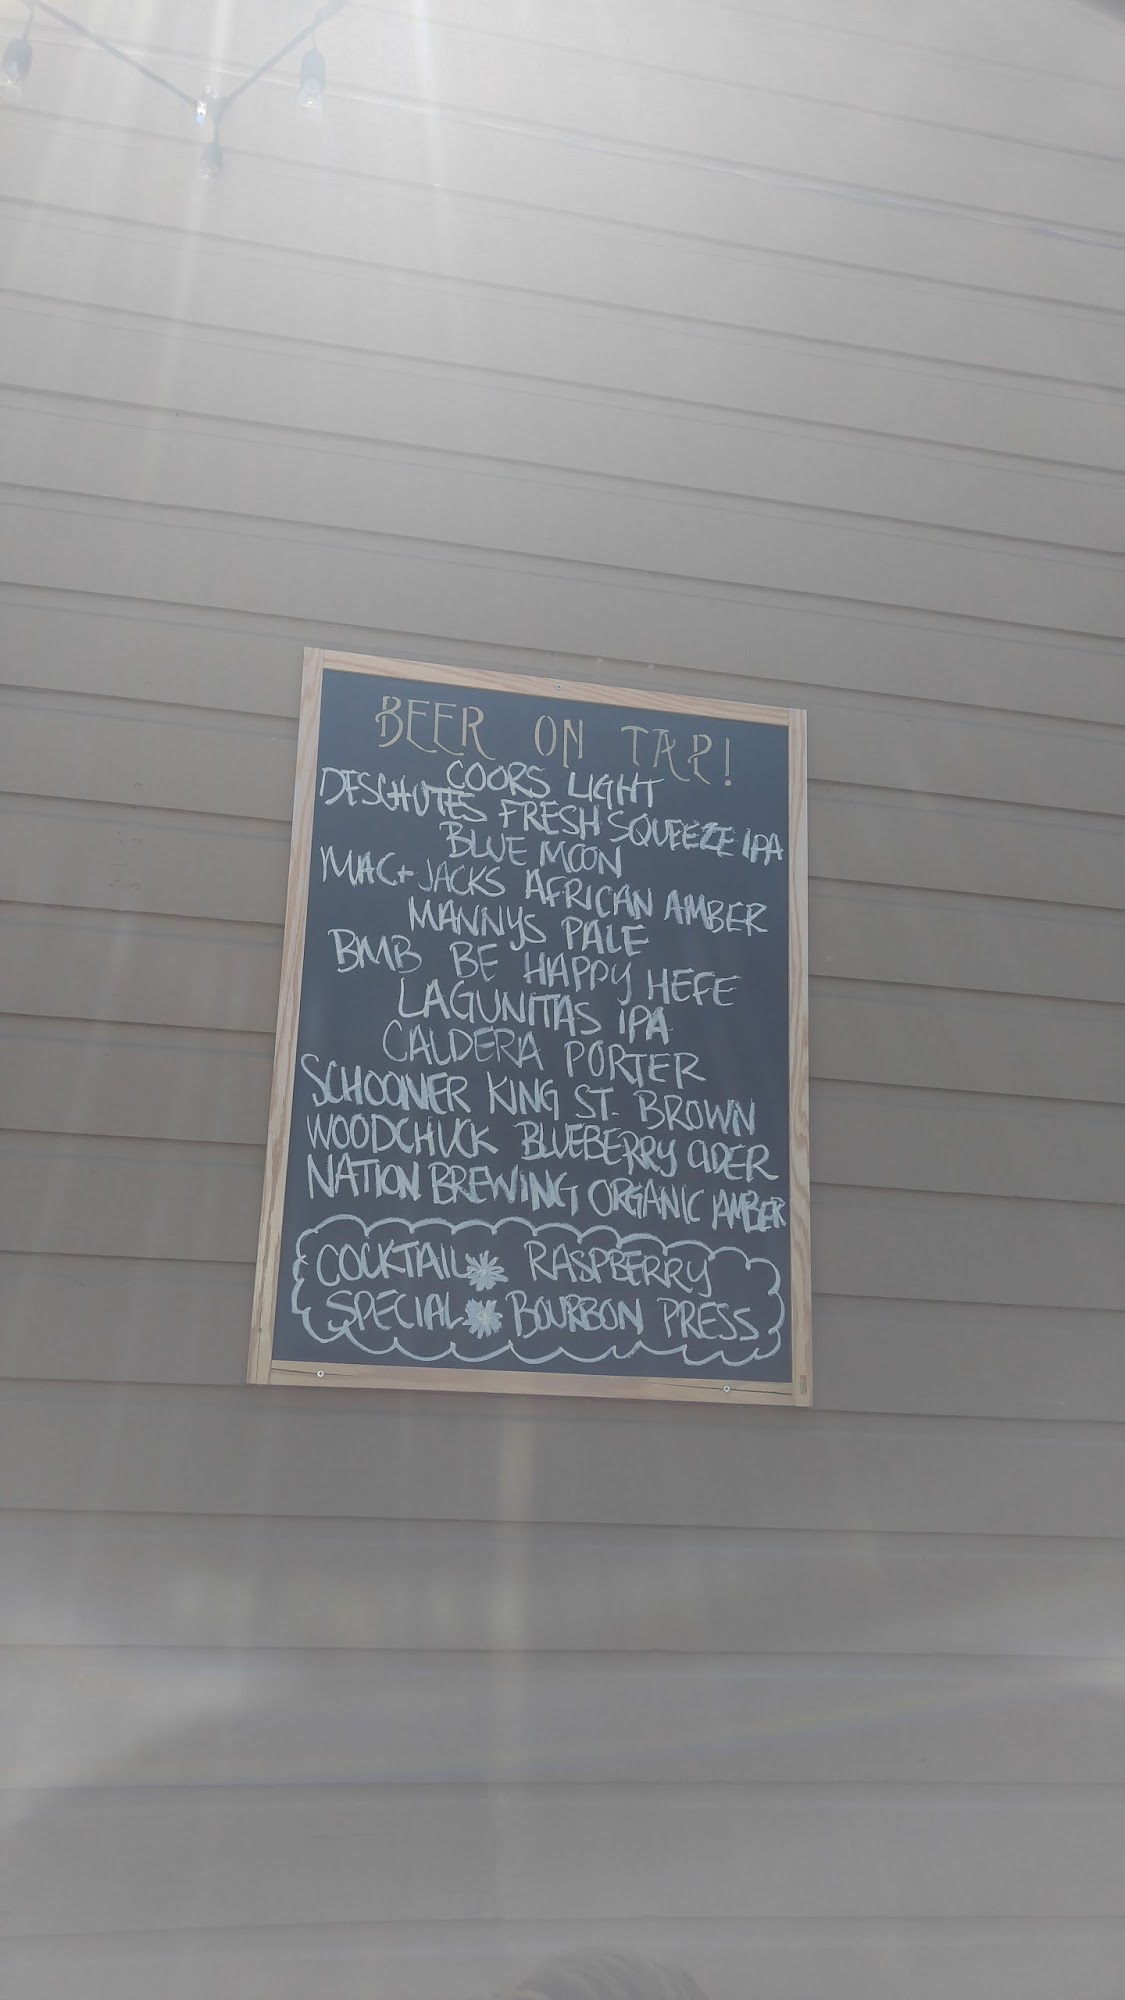 BEER ON TAP!
COORS LIGHT
DESCHUTES FRESH SQUEEZE IPA
BLUE MOON
MAC + JACKS AFRICAN AMBER
MANNYS PALE
BMB BE HAPPY HEFE
LAGUNITAS IPA
CALDERA PORTER
SCHOONER KING ST. BROWN
WOODCHUCK BLUEBERRY CIDER
NATION BREWING ORGANIC AMBER
COCKTAIL RASPBERRY
SPECIAL BOURBON PRESS